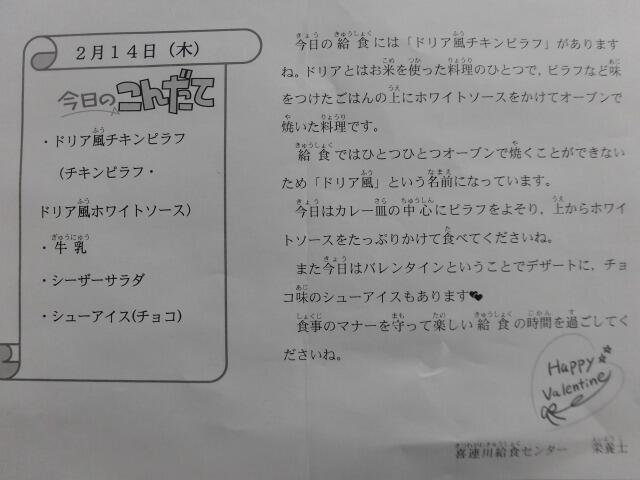 2月14日（木）
今日のこんだて
・ドリア風チキンピラフ
（チキンピラフ・
ドリア風ホワイトソース）
・牛乳
・シーザーサラダ
・シューアイス(チョコ)
今日の給食には「ドリア風チキンピラフ」があります
ね。ドリアとはお米を使った料理のひとつで，ピラフなど味
をつけたごはんの上にホワイトソースをかけてオーブンで
焼いた料理です。
給食ではひとつひとつオーブンで焼くことができない
ため「ドリア風」という名前になっています。
今日はカレー皿の中心にピラフをよそり，上からホワイ
トソースをたっぷりかけて食べてくださいね。
また今日はバレンタインということでデザートに，チョ
コ味のシューアイスもあります
食事のマナーを守って楽しい給食の時間を過ごしてく
ださいね。
Happy
Valentine
喜連川給食センター　栄養士